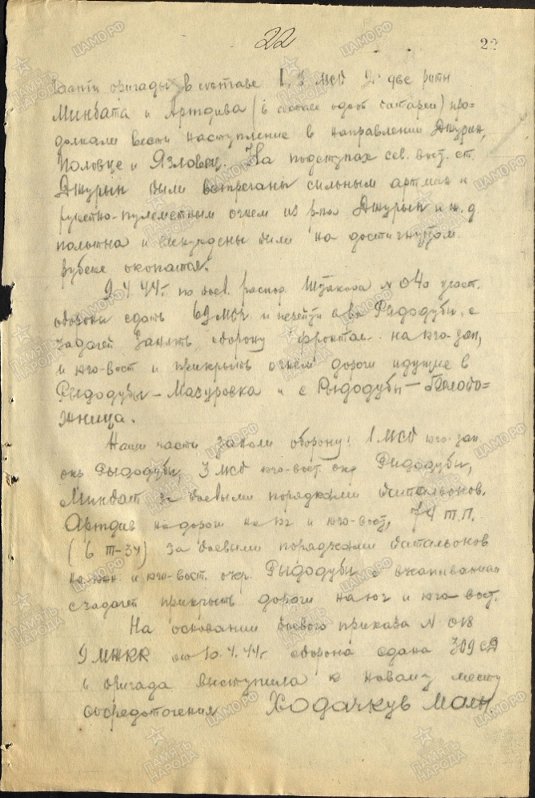 22
22
части бригады в составе 1, 3 мсб и две роты
Минбата и Артдива (в составе одной батареи) про-
должали вести наступление в направлении Джурин,
Половце и Язловец. На подступах сев. вост. ст.
Джурын были встречены сильным арт. мин и
ружейно-пулеметным огнем из р-на Джурын и ж.д
полотна и были на достигнутом
рубеже окопаться.
9.4.44г. по боев. распор. № 040 участ.
обороны сдать 69 мбр и перейти в Рыдодубы, с
задачей занять оборону фронтом на юго-зап,
и юго-вост и прикрыть огнем дороги идущие в
Рыдодубы – Мазуровка и с Рыдодубы – Белобо-
жница.
Наши части заняли оборону: 1 МСБ юго-зап
окр Рыдодубы, 3 мсб юго-вост. окр Рыдодубы,
Минбат за боевыми порядками батальонов.
Артдив на дороги на юг и юго-вост, 74 т.п.
(6 т-34) за боевыми порядками батальонов
на юж. и юго-вост. окр. Рыдодубы
с задачей прикрыть дороги на юг и юго-вост.
На основании боевого приказа № 018
9 МККК от 10.4.44г. оборона сдана 309 СД
и бригада выступила к новому месту
сосредоточения Ходачкув Мали.
ЦАМО РФ
ПАМЯТЬ НАРОДА